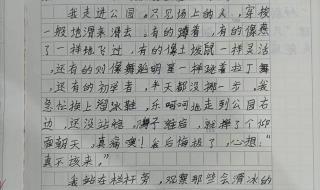 我走进公园。只见场上的人，穿梭
一般地滑来滑去，有的蹲着，有的像燕
子一样地飞过，有的像土拨鼠一样灵活
，还有的则像舞蹈明星一样跳着拉丁舞
，还有的初学者，半天都没挪一步。我
急忙换上溜冰鞋，乐呵呵地走到公园右
边，还没站稳，滑子鞋后，就摔了个仰
面朝天，真痛啊！我后悔极了，心想："
真不该来。"
我站在栏杆旁，观察那些会滑冰的